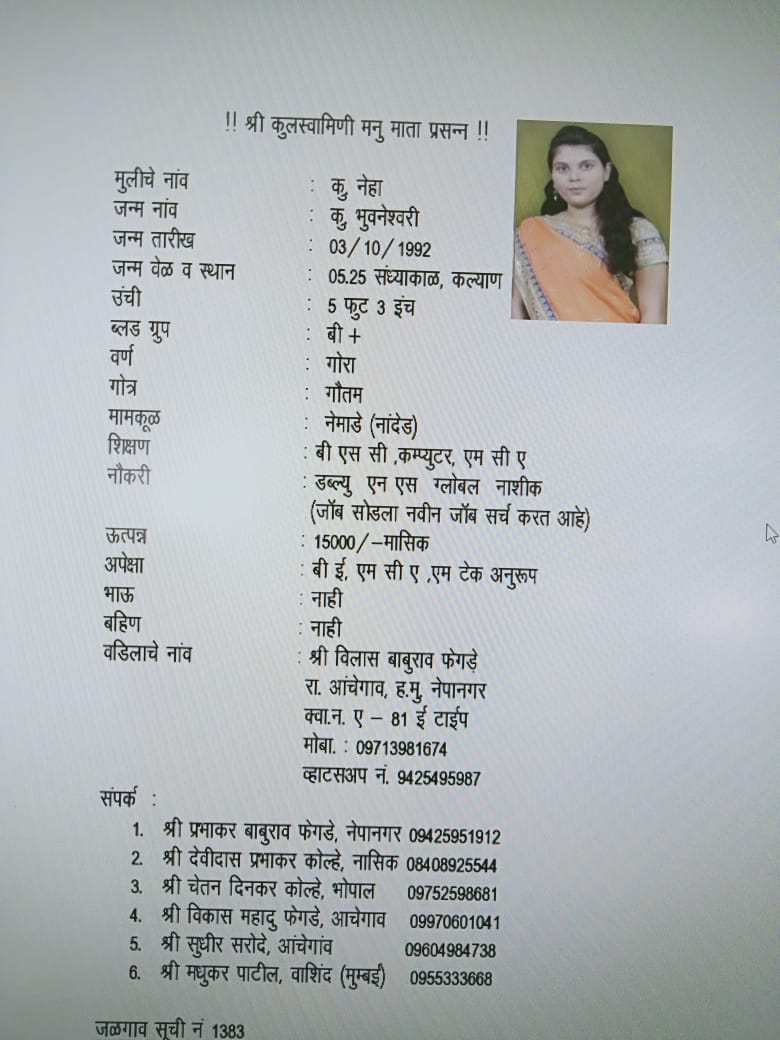 !! श्री कुलस्वामिणी मनु माता प्रसन्न !!
मुलीचे नांव : कु. नेहा
जन्म नांव : कु. भुवनेश्वरी
जन्म तारीख : 03/10/1992
जन्म वेळ व स्थान : 05.25 संध्याकाळ, कल्याण
उंची : 5 फुट 3 इंच
ब्लड ग्रुप : बी +
वर्ण : गोरा
गोत्र : गौतम
मामकूळ : नेमाडे (नांदेड)
शिक्षण : बी एस सी ,कम्प्युटर, एम सी ए
नौकरी : डब्ल्यु एन एस ग्लोबल नाशीक
(जॉब सोडला नवीन जॉब सर्च करत आहे)
ऊत्पन्न : 15000/-मासिक
अपेक्षा : बी ई, एम सी ए ,एम टेक अनुरूप
भाऊ : नाही
बहिण : नाही
वडिलाचे नांव : श्री विलास बाबुराव फेगड़े
रा. आंचेगाव, ह.मु. नेपानगर
क्वा.न. ए – 81 ई टाईप
मोबा. : 09713981674
व्हाटसअप नं. 9425495987
संपर्क :
1. श्री प्रभाकर बाबुराव फेगडे, नेपानगर 09425951912
2. श्री देवीदास प्रभाकर कोल्हे, नासिक 08408925544
3. श्री चेतन दिनकर कोल्हे, भोपाल 09752598681
4. श्री विकास महादु फेगडे, आचेगाव 09970601041
5. श्री सुधीर सरोदे, आंचेगांव 09604984738
6. श्री मधुकर पाटील, वाशिंद (मुम्बई) 0955333668
जळगाव सूची नं 1383